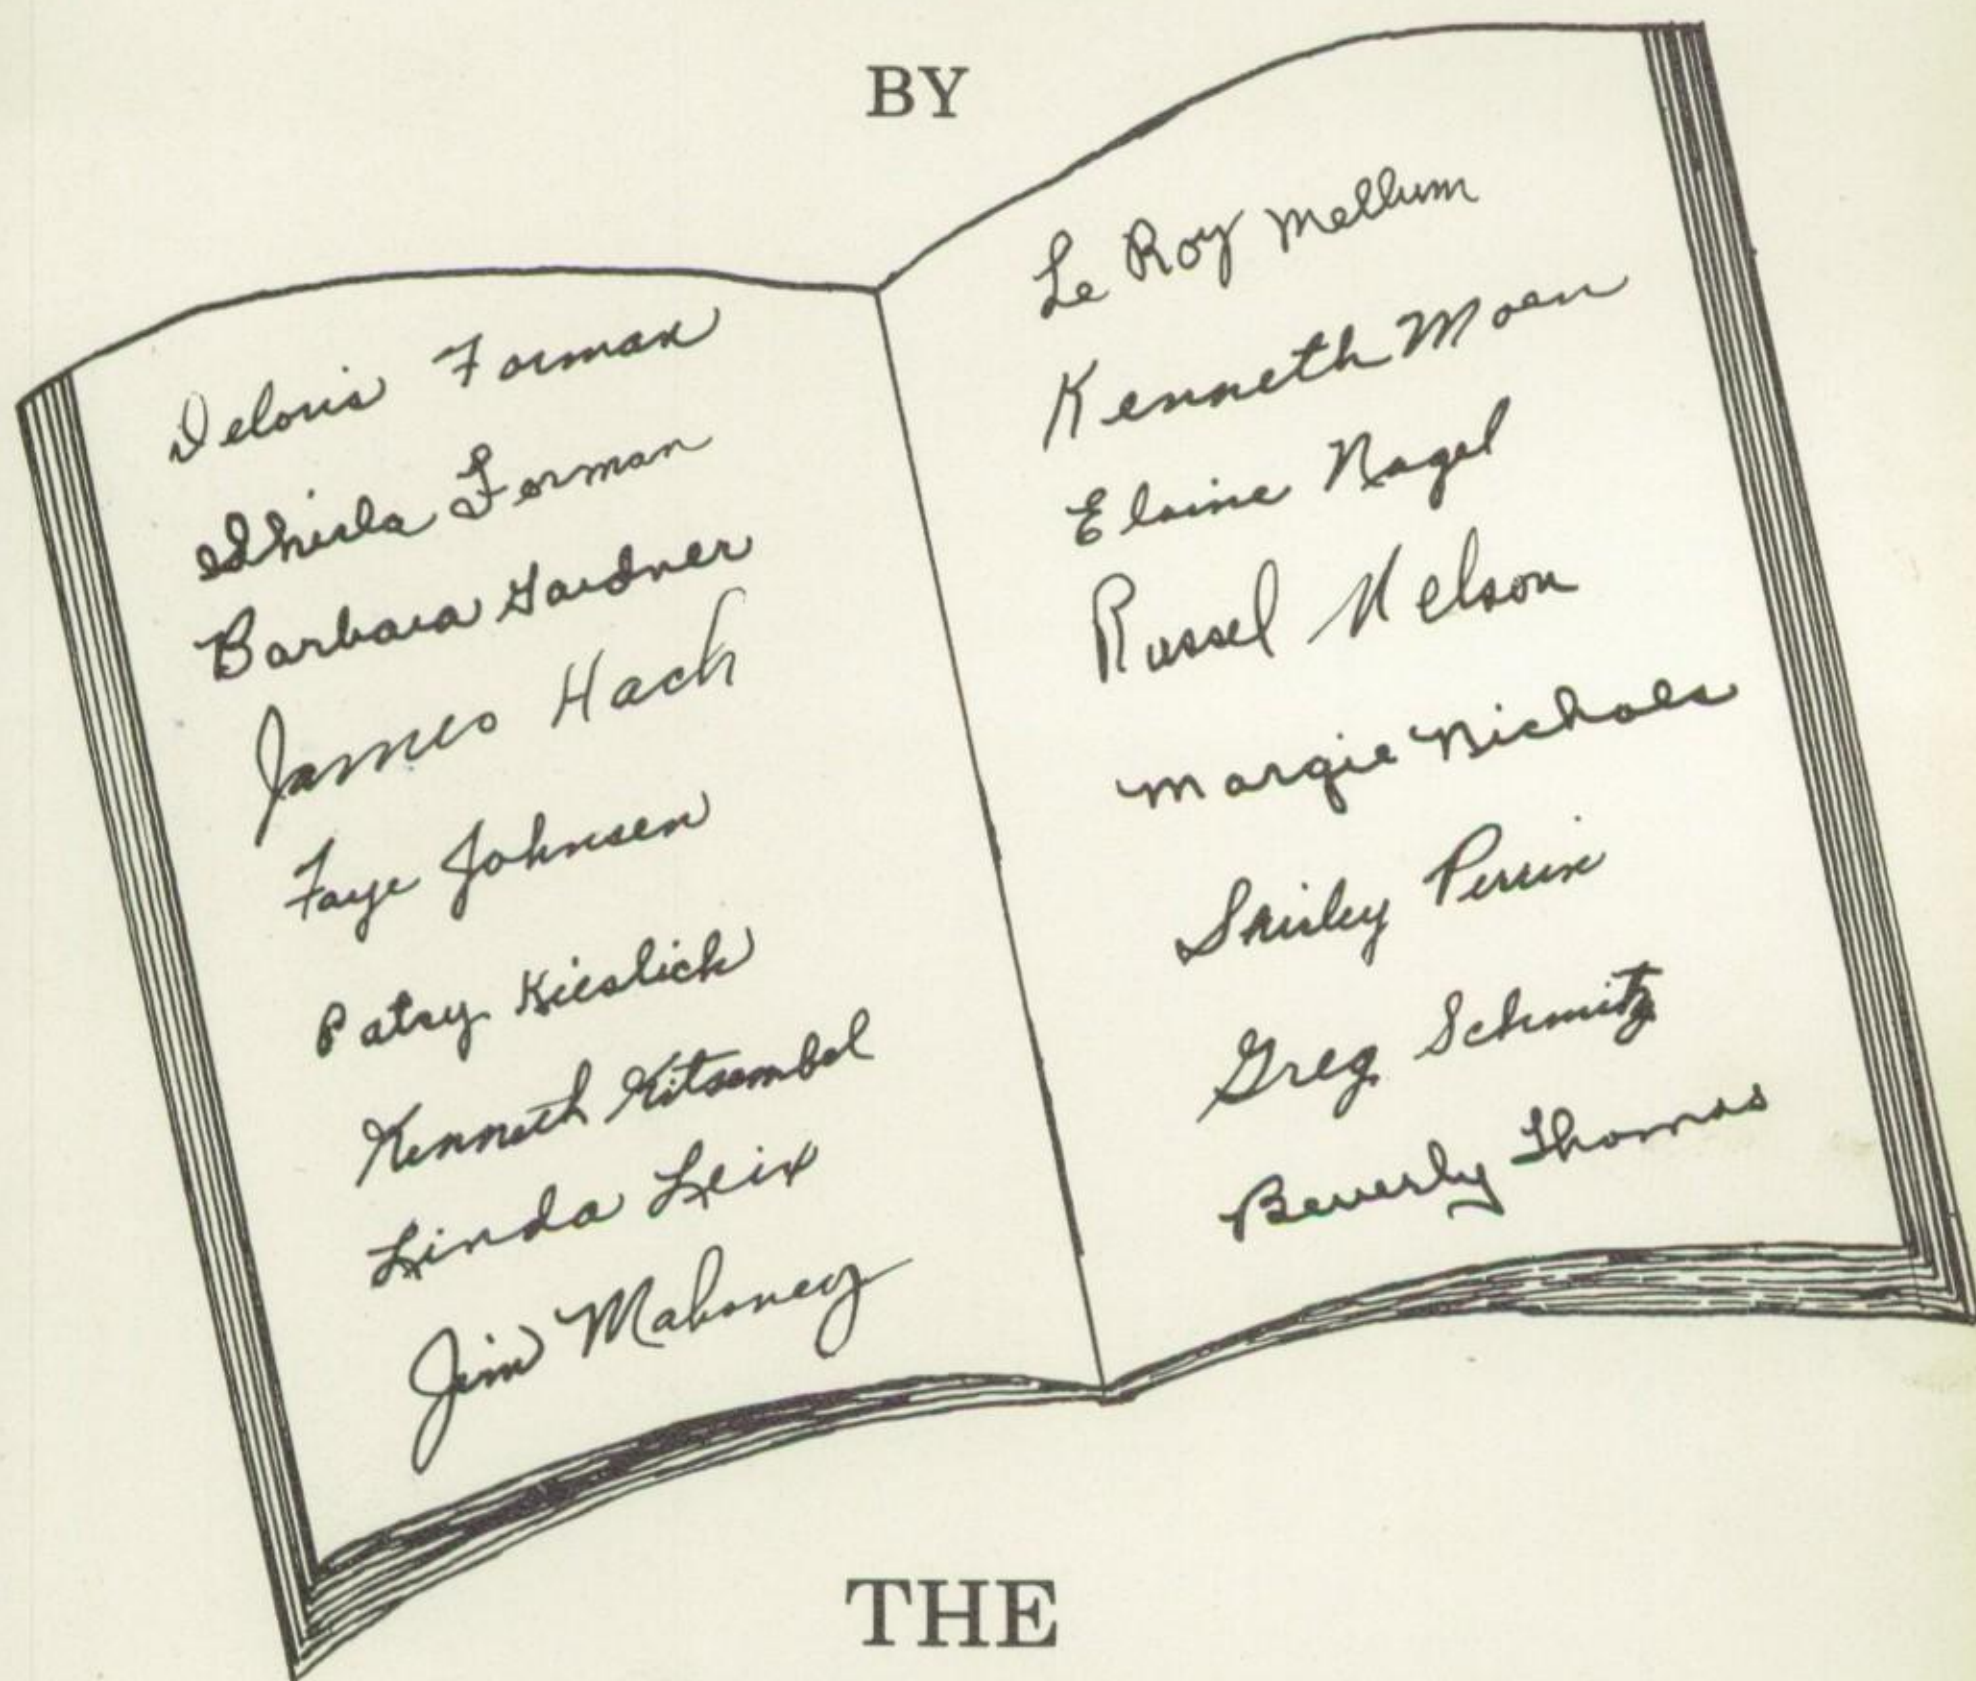 BY
Deloris Forman
Shirla Forman
Barbara Gardner
James Hach
Faye Johnsen
Patsy Kieslich
Kenneth Kitsembel
Linda Leix
Jim Mahoney
Le Roy Mellum
Kenneth Moen
Elaine Nagel
Russel Nelson
Margie Nichols
Shirley Perrin
Greg Schmitz
Beverly Thomas
THE